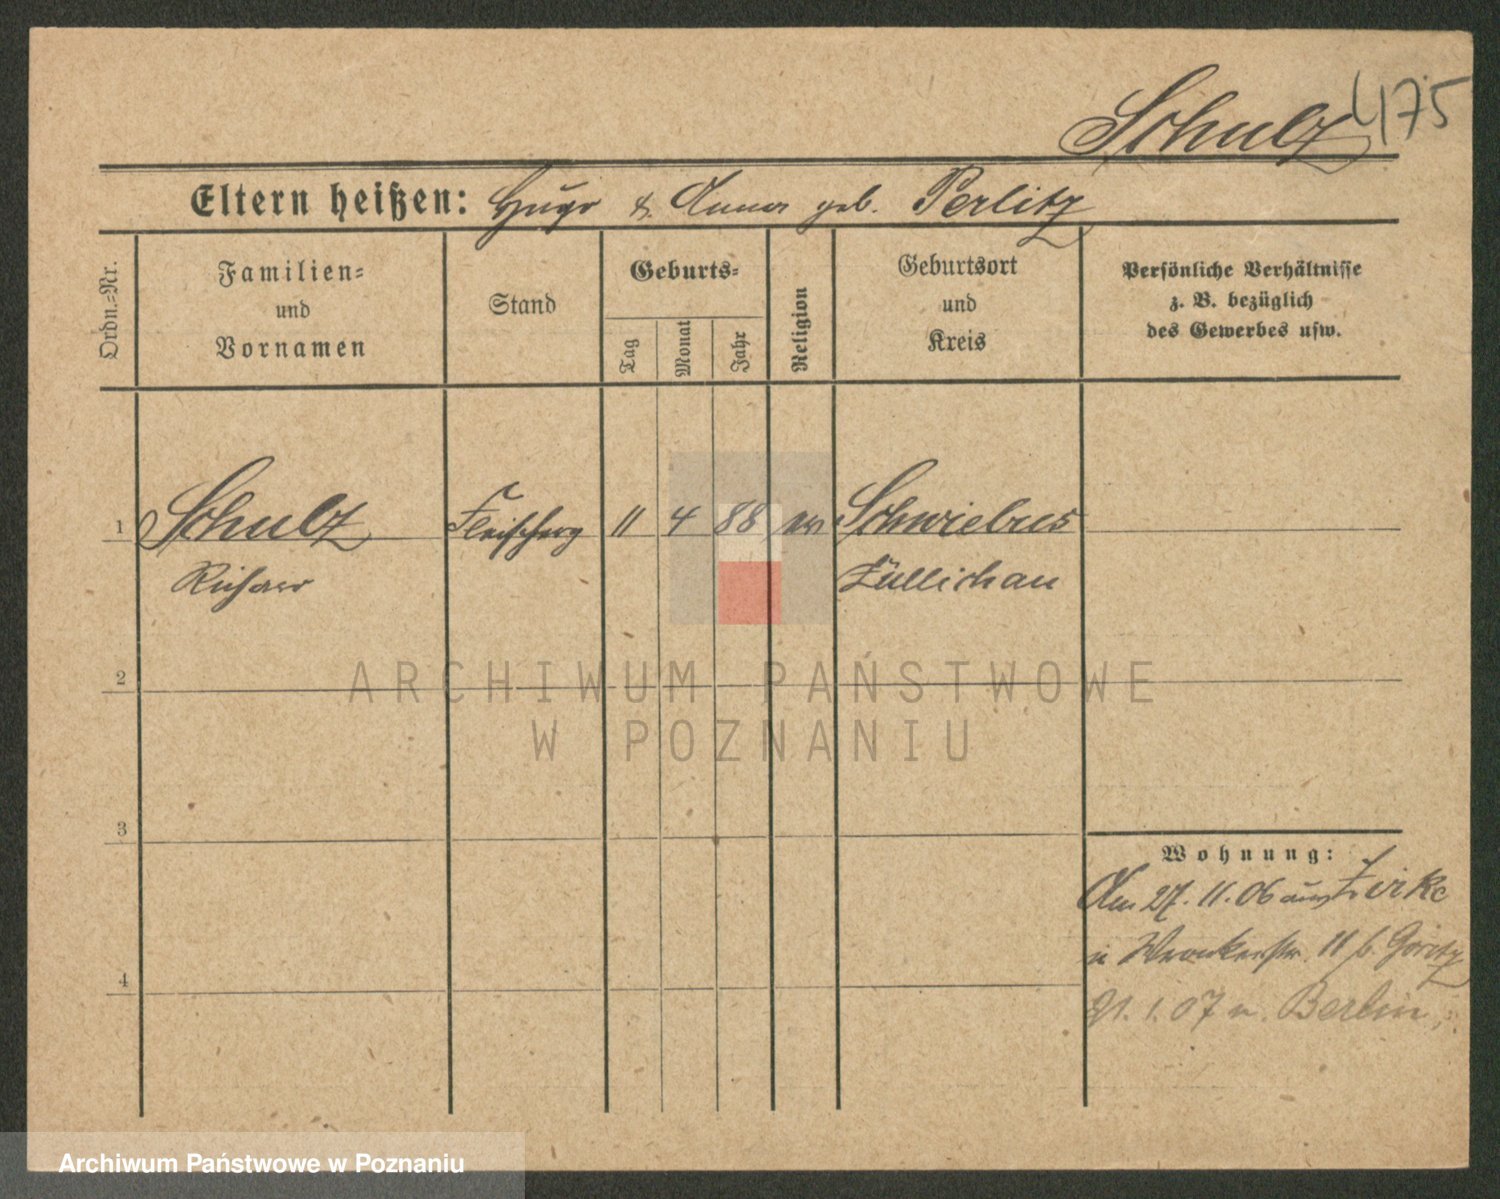 Schulz 4175
Eltern heißen: Hugo & Anna geb. Perlitz
Ordn.-Nr.
Familien-
und
Vornamen
Stand
Geburts-
Tag
Monat
Jahr
Religion
Geburtsort
und
Kreis
Persönliche Verhältnisse
z. B. bezüglich
des Gewerbes usw.
1 Schulz Fleischerg 11 4 88 ev Schwiebus
Richard Züllichau
2
3
4
Wohnung:
Am 27.11.06 aus Zirke
n Wronkerstr. 11 b. Göritz
21.1.07 n. Berlin
ARCHIWUM PAŃSTWOWE
W POZNANIU
Archiwum Państwowe w Poznaniu